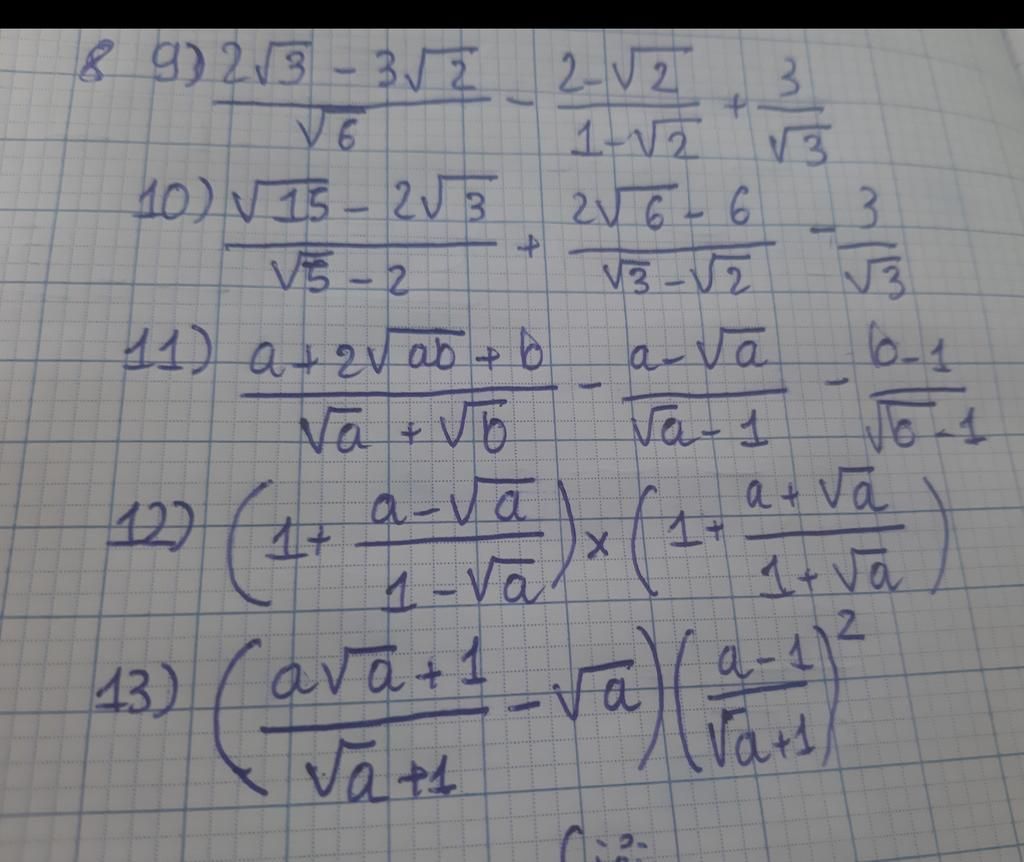 8 9) \frac{2\sqrt{3} - 3\sqrt{2}}{\sqrt{6}} - \frac{2-\sqrt{2}}{1-\sqrt{2}} + \frac{3}{\sqrt{3}}
10) \frac{\sqrt{15} - 2\sqrt{3}}{\sqrt{5} - 2} + \frac{2\sqrt{6} - 6}{\sqrt{3} - \sqrt{2}} - \frac{3}{\sqrt{3}}
11) \frac{a + 2\sqrt{ab} + b}{\sqrt{a} + \sqrt{b}} - \frac{a - \sqrt{a}}{\sqrt{a} - 1} - \frac{b - 1}{\sqrt{b} - 1}
12) \left(1 + \frac{a - \sqrt{a}}{1 - \sqrt{a}}\right) \times \left(1 + \frac{a + \sqrt{a}}{1 + \sqrt{a}}\right)
13) \left(\frac{a\sqrt{a} + 1}{\sqrt{a} + 1} - \sqrt{a}\right)\left(\frac{a - 1}{\sqrt{a} + 1}\right)^2